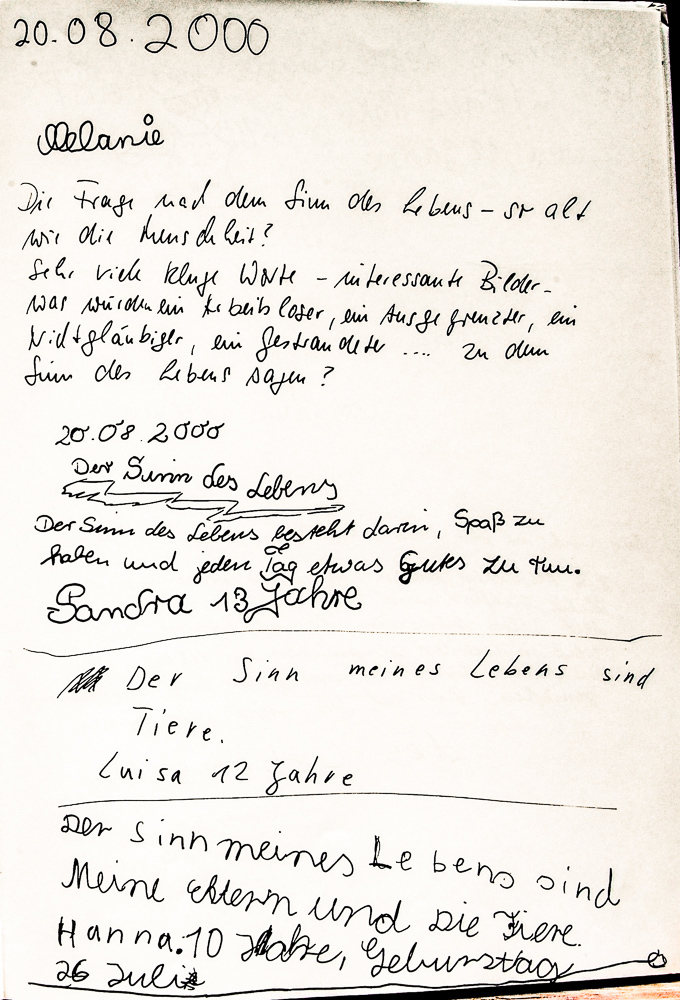 20.08.2000
Melanie
Die Frage nach dem Sinn des Lebens – so alt
wie die Menschheit?
Sehr viele kluge Worte – interessante Bilder –
was würden ein Arbeitsloser, ein Ausgegrenzter, ein
Nichtgläubiger, ein Gestrandeter .... zu dem
Sinn des Lebens sagen?
20.08.2000
Der Sinn des Lebens
Der Sinn des Lebens besteht darin, Spaß zu
haben und jeden Tag etwas Gutes zu tun.
Sandra 13 Jahre
Der Sinn meines Lebens sind
Tiere.
Luisa 12 Jahre
Der Sinn meines Lebens sind
Meine Eltern und Die Tiere.
Hanna. 10 Jahre, Geburtstag
26 Juli